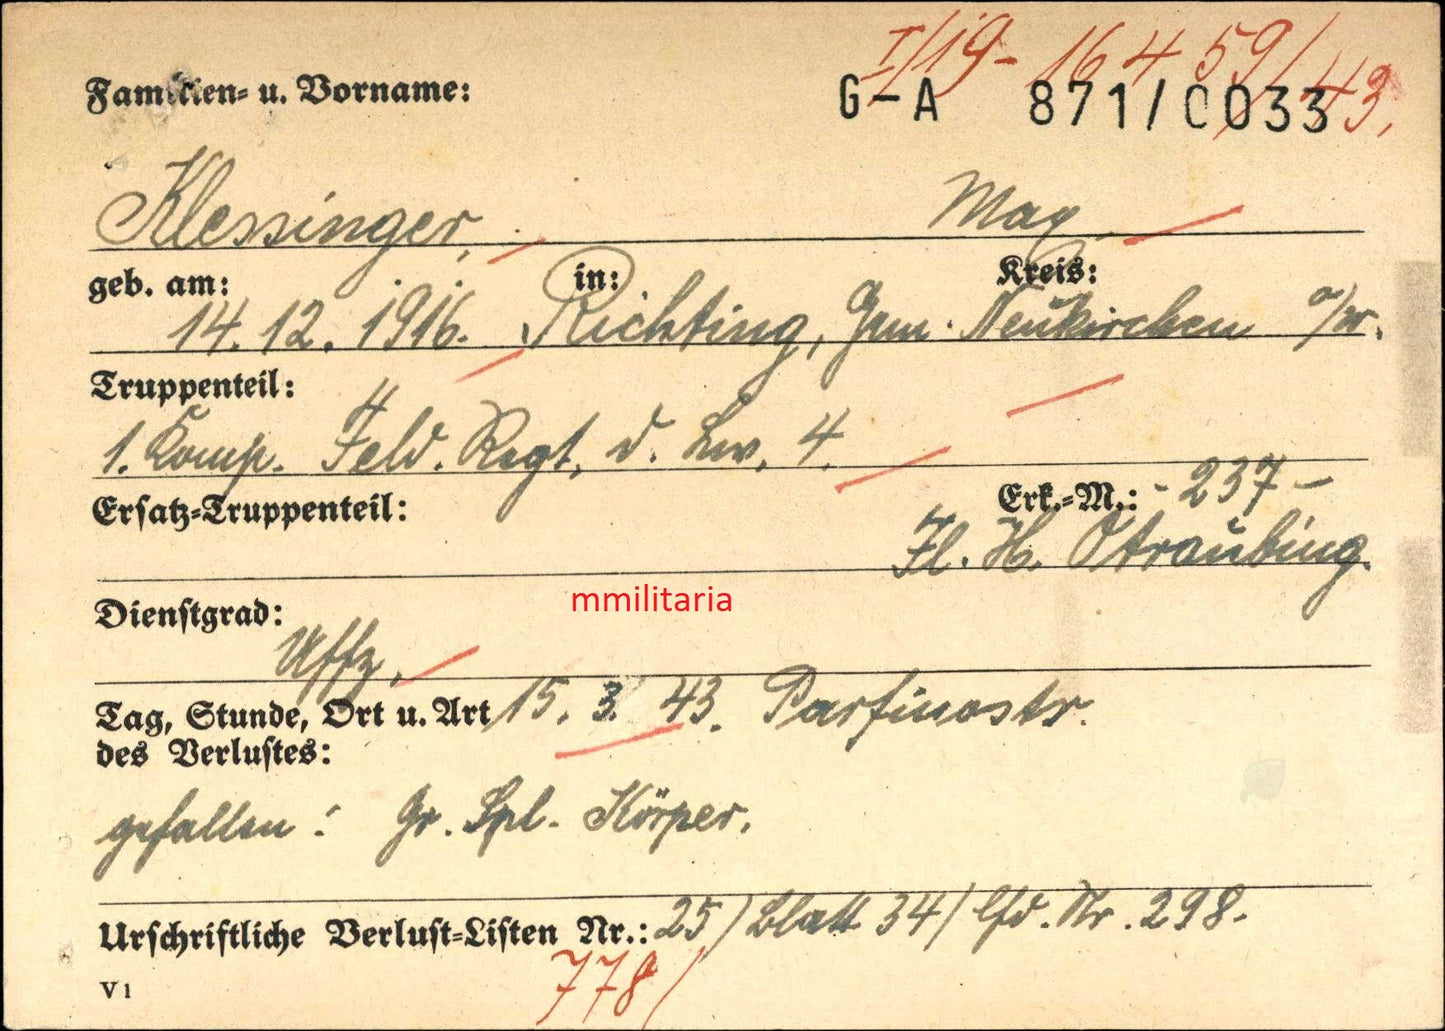 I/19-16459/43.
Familien- u. Vorname:
G-A 871/0033
Klessinger, Max
geb. am: in: Kreis:
14.12.1916. Richting, Gem. Neukirchen a/W.
Truppenteil:
1. Komp. Feld. Regt. d. Lw. 4.
Ersatz-Truppenteil: Erk.-M.: -237-
Fl. H. Straubing.
mmilitaria
Dienstgrad:
Uffz.
Tag, Stunde, Ort u. Art 15. 3. 43. Parfinostr.
des Verlustes:
gefallen: Gr. Spl. Körper.
Urschriftliche Verlust-Listen Nr.: 25/Blatt 34/lfd. Nr. 298.
778/
V 1